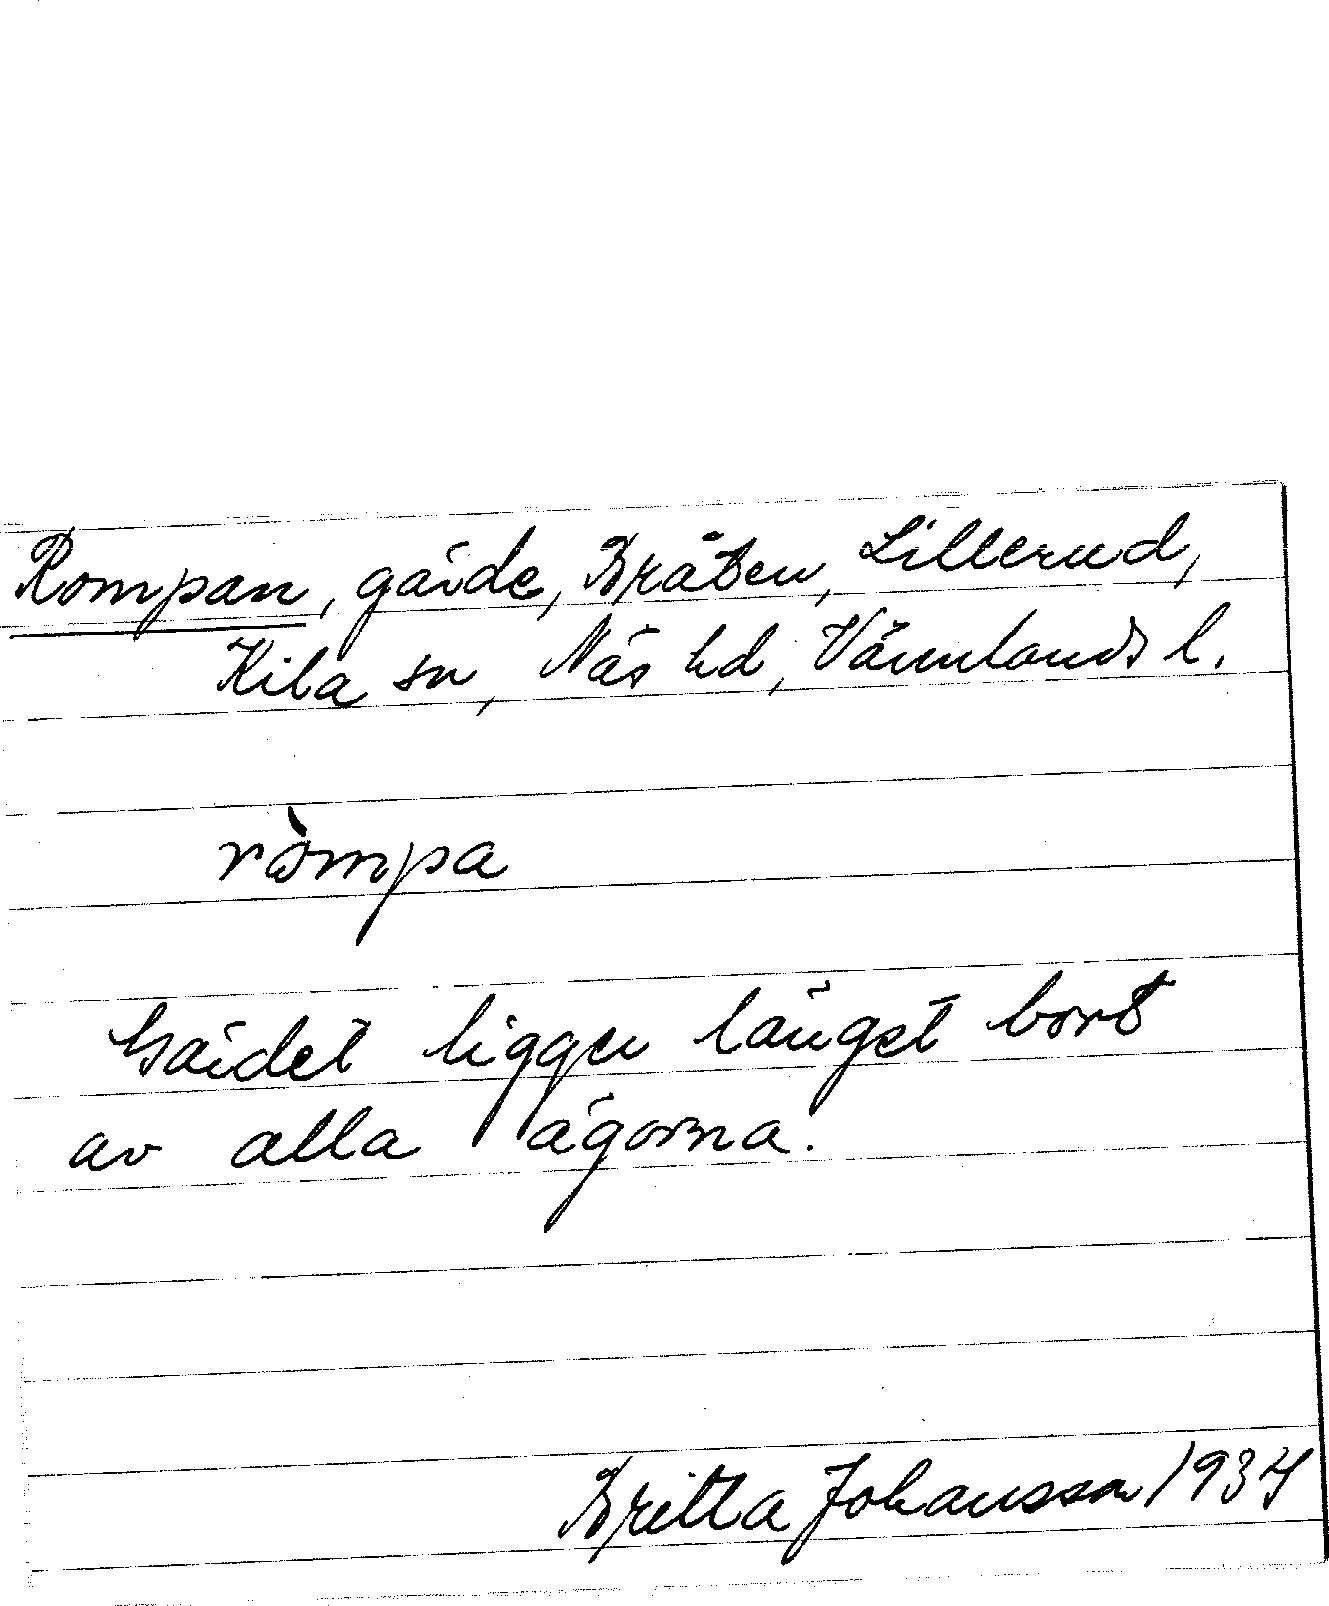 Rompan, gärde, Bråten, Lillerud,
Kila sn, Näs hd, Värmlands l.
ròmpa
Gärdet ligger längst bort
av alla ägorna.
Britta Johansson 1934